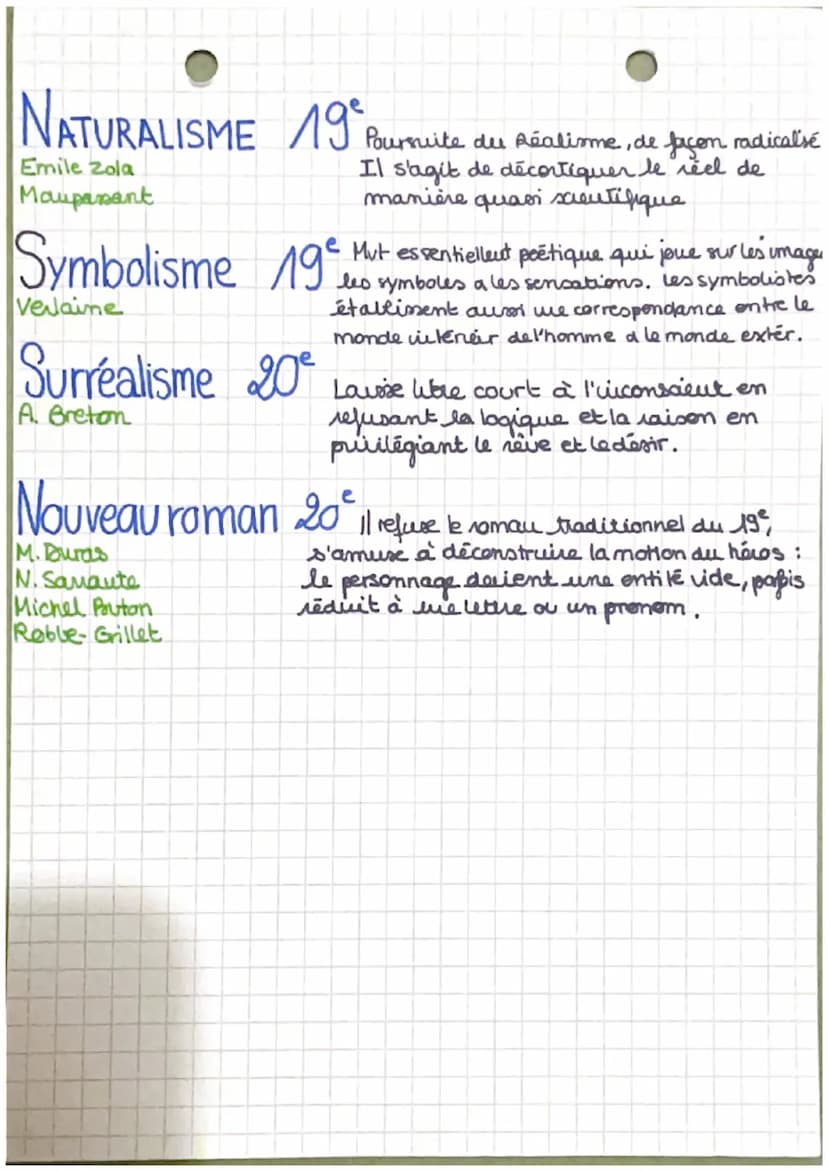 NATURALISME 19e Poursuite du Réalisme, de façon radicalisé
Emile Zola Il s'agit de décortiquer le réel de
Maupassant manière quasi scientifique
Symbolisme 19e Mvt essentiellent poétique qui joue sur les image
les symboles et les sensations. Les symbolistes
Verlaine établissent aussi une correspondance entre le
monde intérieir de l'homme et le monde extér.
Surréalisme 20e
Laisse libre court à l'inconscient en
A. Breton refusant la logique et la raison en
privilégiant le rêve et le désir.
Nouveau roman 20e Il refuse le roman traditionnel du 19e,
M. Duras s'amuse à déconstruire la notion du héros :
N. Sarraute le personnage devient une entité vide, parfois
Michel Button réduit à une lettre ou un pronom.
Robbe-Grillet